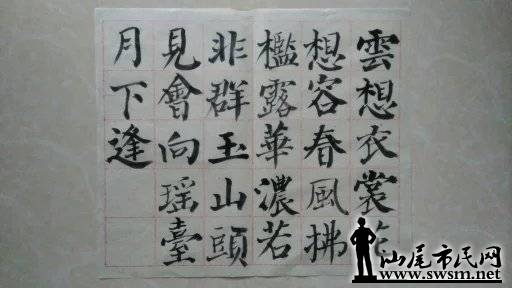 雲想衣裳花
想容春風拂
檻露華濃若
非群玉山頭
見會向瑶臺
月下逢
汕尾市民网
www.swsm.net